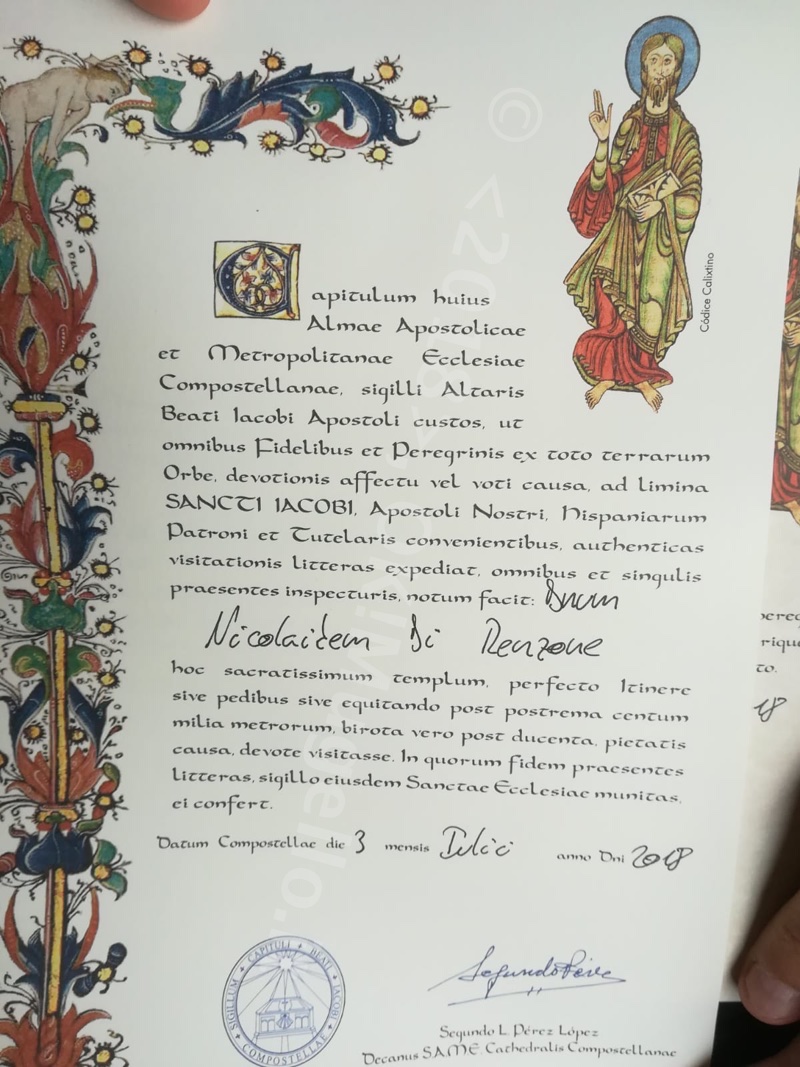 Capitulum huius
Almae Apostolicae
et Metropolitanae Ecclesiae
Compostellanae, sigilli Altaris
Beati Iacobi Apostoli custos, ut
omnibus Fidelibus et Peregrinis ex toto terrarum
Orbe, devotionis affectu vel voti causa, ad limina
SANCTI IACOBI, Apostoli Nostri, Hispaniarum
Patroni et Tutelaris convenientibus, authenticas
visitationis litteras expediat, omnibus et singulis
praesentes inspecturis, notum facit: Dnum
Nicolaidem Di Renzone
hoc sacratissimum templum, perfecto Itinere
sive pedibus sive equitando post postrema centum
milia metrorum, birota vero post ducenta, pietatis
causa, devote visitasse. In quorum fidem praesentes
litteras, sigillo eiusdem Sanctae Ecclesiae munitas,
ei confert.
Datum Compostellae die 3 mensis Iulii anno Dni 2018
Códice Calixtino
SIGILLUM CAPITULI BEATI JACOBI COMPOSTELLAE
Segundo Pérez
Segundo L. Pérez López
Decanus S.A.M.E. Cathedralis Compostellanae
to.
18